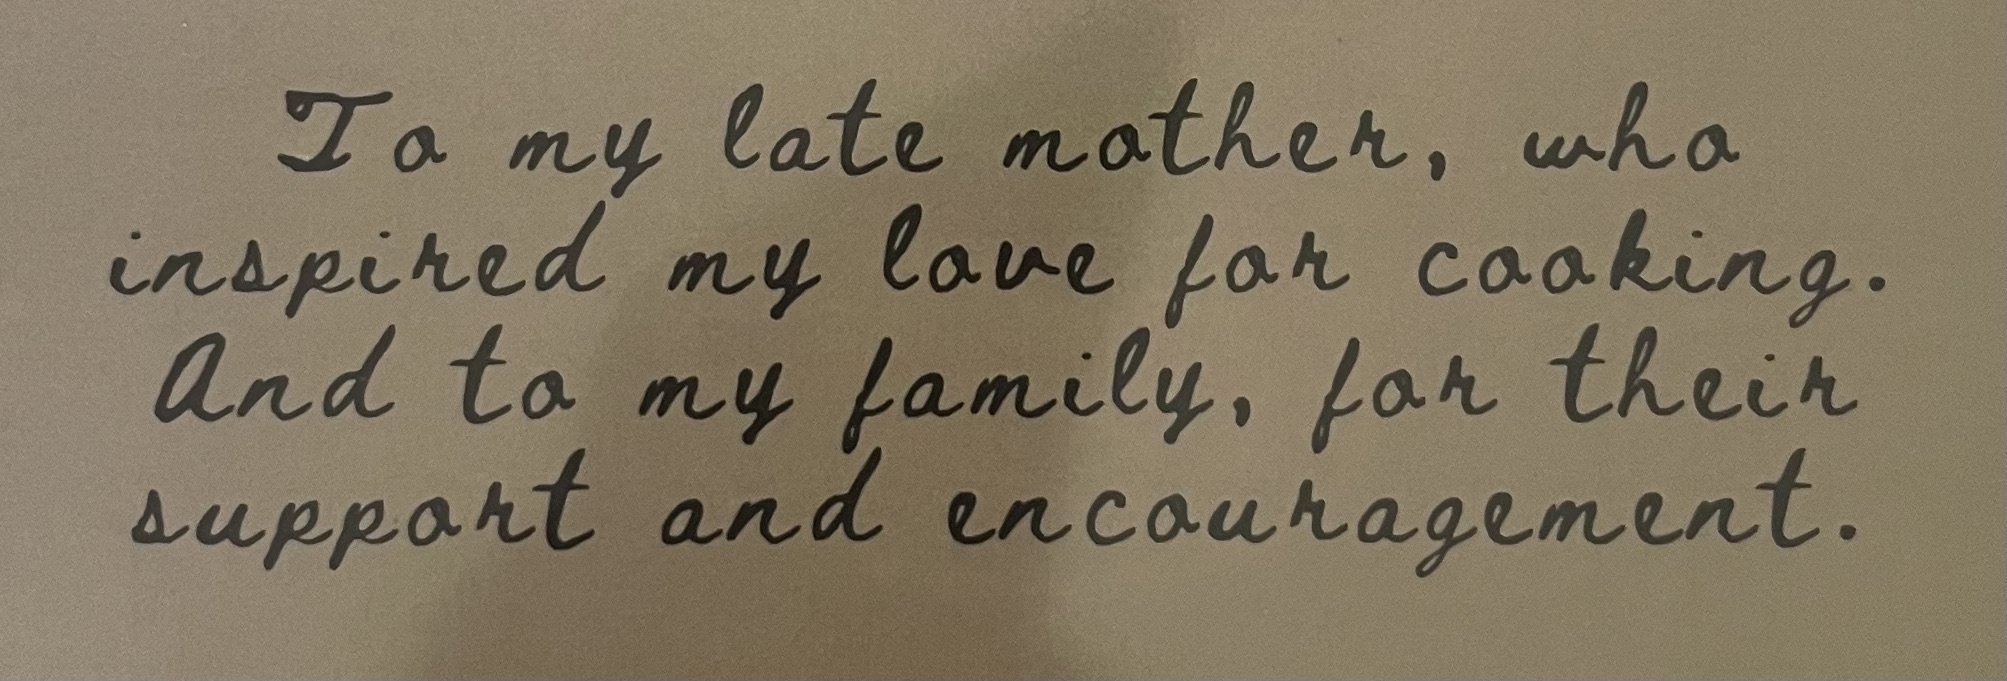 To my late mother, who
inspired my love for cooking.
And to my family, for their
support and encouragement.